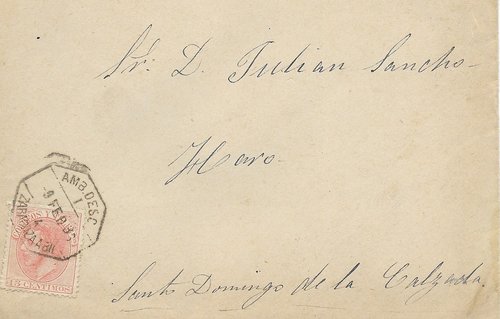 Sr. D. Julian Sancho-
Haro-
Santo Domingo de la Calzada.
AMB. DESC
1
9 FEB 8
CORREOS Y
15 CENTIMOS